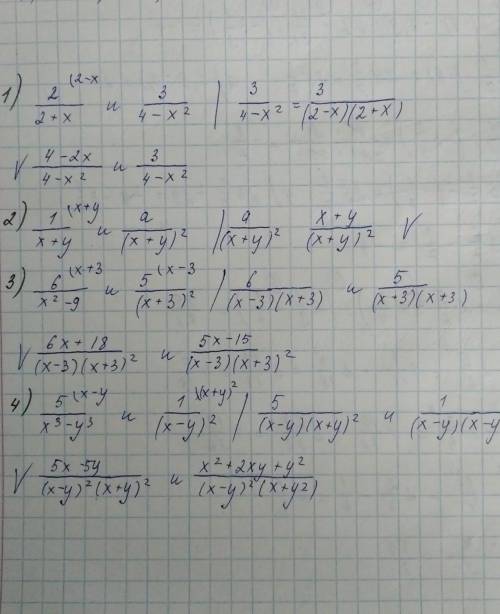 1) 2 (2-x / 2+x и 3 / 4-x² | 3 / 4-x² = 3 / (2-x)(2+x)
V 4-2x / 4-x² и 3 / 4-x²
2) 1 (x+y / x+y и a / (x+y)² | a / (x+y)² x+y / (x+y)² V
3) 6 (x+3 / x²-9 и 5 (x-3 / (x+3)² | 6 / (x-3)(x+3) и 5 / (x+3)(x+3)
V 6x+18 / (x-3)(x+3)² и 5x-15 / (x-3)(x+3)²
4) 5 (x-y / x³-y³ и 1 \(x+y)² / (x-y)² | 5 / (x-y)(x+y)² и 1 / (x-y)(x-y
V 5x-5y / (x-y)²(x+y)² и x²+2xy+y² / (x-y)²(x+y²)